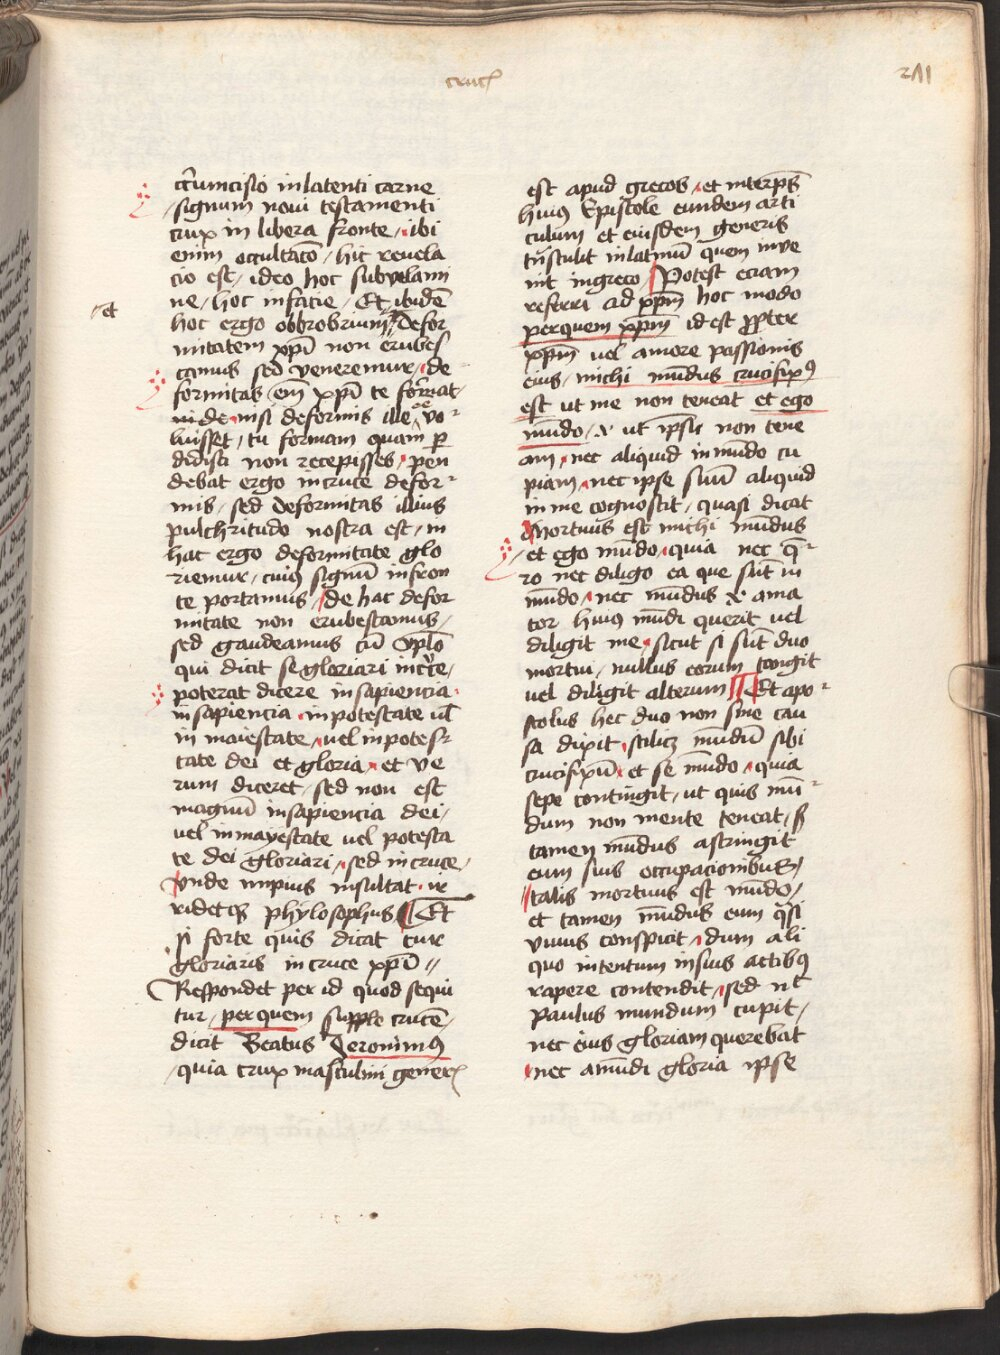 cruc̄
211
et
cͥrumcisio in latenti carne
signum noui testamenti
crux in libera fronte / ibi
enim occultac̄o / hic reuela
cio est / ideo hoc sub velami
ne / hoc in facie / Et ibidē
hoc ergo obbrobrium / Defor
mitatem xp̄i non erubes
camus sed veneremur / de
formitas em̄ xp̄i te format
nisi deformis ille vo-
luisset / tu formam quam ꝑ
didisti non recepisses / pen
debat ergo in cruce defor-
mis / sed deformitas illius
pulchritudo nostra est / in
hac ergo deformitate glo
riemur / cuiꝯ signū in fron
te portamus / de hac defor
mitate non erubescamus /
sed gaudeamus cū aplo
qui dicit se gloriari in cͥce /
poterat dicere in sapiencia
in sapiencia / in potestate ul̄
in maiestate / uel in potes-
tate dei et gloria / et ve
rum diceret / sed non est
magnū in sapiencia dei /
uel in mayestate uel potesta
te dei gloriari / sed in cruce /
Vnde impius insultat / ir
ridet qͥs phylosophus / Et
si forte quis dicat cur
gloriaris in cruce xp̄i //
Respondet per id quod sequi
tur / per quem supple crucē /
dicit Beatus Ieronimꝯ
quia crux masculini gener̄
est apud grecos / et interp̄s
huiꝯ Epistole eundem arti
culum et eiusdem generis
tn̄stulit in latinū quem inve
nit in greco / Potest eciam
referri ad xp̄m hoc modo
per quem xp̄m id est ꝓpter
xp̄m uel amore passionis
eius / michi mūdus crucifixꝯ
est ut me non teneat et ego
mūdo / x ut ipsū non tene
am / nec aliquid in mūdo cu
piam / nec ipse suū aliquid
in me cognoscit / quasi dicat
Mortuus est michi mūdus
et ego mūdo / quia nec q̄-
ro nec diligo ea que sūt in
mūdo / nec mūdus x ama
tor huiꝯ mūdi querit uel
diligit me / sicut si sūt duo
mortui / nullus eorum tangit
uel diligit alterum / Et apo-
stolus hec duo non sine cau
sa dixit / scilicꝫ mūdū sibi
crucifixū / et se mūdo / quia
sepe contingit / ut quis mū-
dum non mente teneat / sꝫ
tamen mūdus astringit
eum suis occupacionibus /
talis mortuus est mūdo /
et tamen mūdus eum qͣsi
viuus conspicit / dum ali
quo intentum in suis actibꝯ
rapere contendit / sed nͨ
Paulus mundum cupit /
nec eius gloriam querebat
nec a mūdi gloria ipse